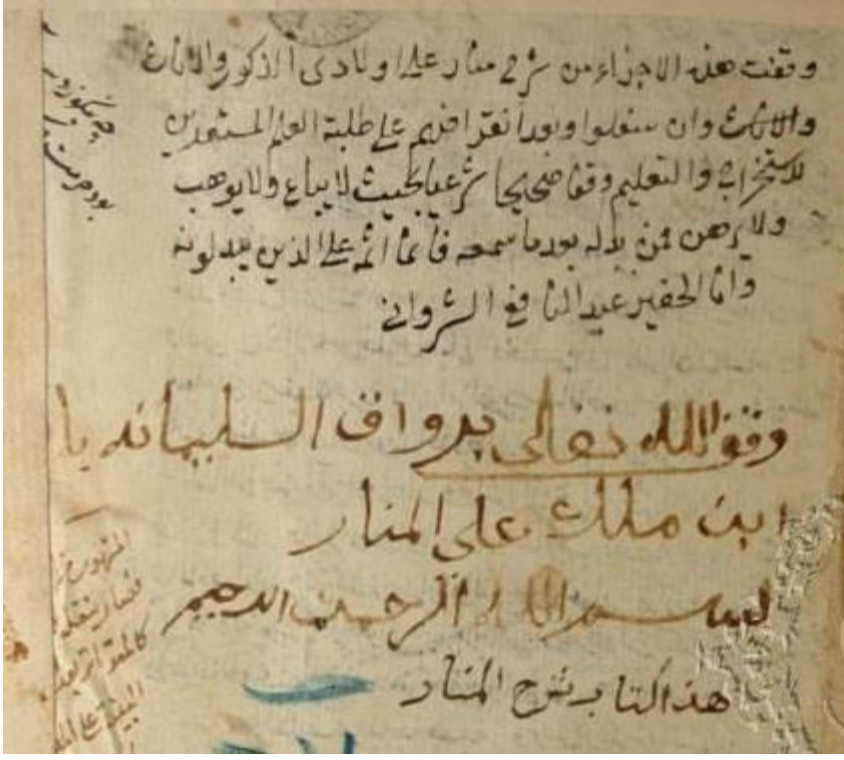 وقفت هذه الاجزاء من شرح منار على اولادى الذكور والاناث
والاناث وان سفلوا وبعد انقراضهم على طلبة العلم المستعدين
للاستخراج والتعليم وقفا صحيحا شرعيا بحيث لا يباع ولا يوهب
ولا يرهن فمن بدله بعد ما سمعه فانما اثمه على الذين يبدلونه
وانا الحقير عبد النافع الشروانى
وقف لله تعالى برواق السليمانيه با
ابن ملك على المنار
بسم الله الرحمن الرحيم
هذا كتاب شرح المنار